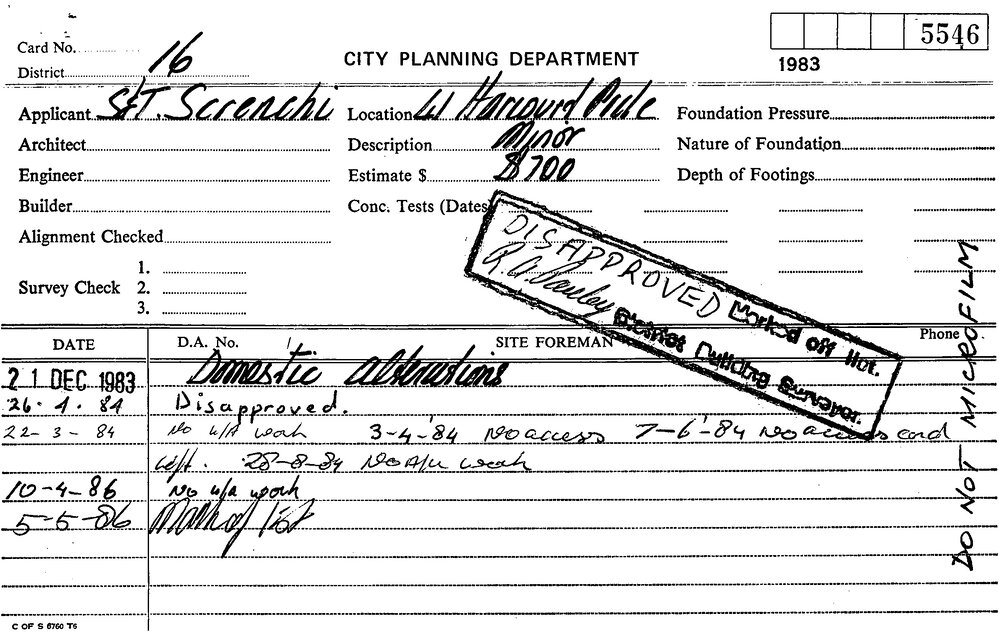 5546
1983
Card No.
District 16
CITY PLANNING DEPARTMENT
Applicant S & T. Screnchi Location 41 Foundation Pressure
Architect Description Minor Nature of Foundation
Engineer Estimate $ $700 Depth of Footings
Builder Conc. Tests (Dates
Alignment Checked
Survey Check 1.
2.
3.
DISAPPROVED Marked off Hist.
District Building Surveyor.
DO NOT MICROFILM
DATE D.A. No. SITE FOREMAN Phone
21 DEC 1983 Domestic alterations
26.4.84 Disapproved.
22-3-84 No u/a work 3-4-84 No access 7-6-84 No access card
left. 28-8-84 No A/u work
10-4-86 No u/a work
5-5-86
C OF S 6760 T6